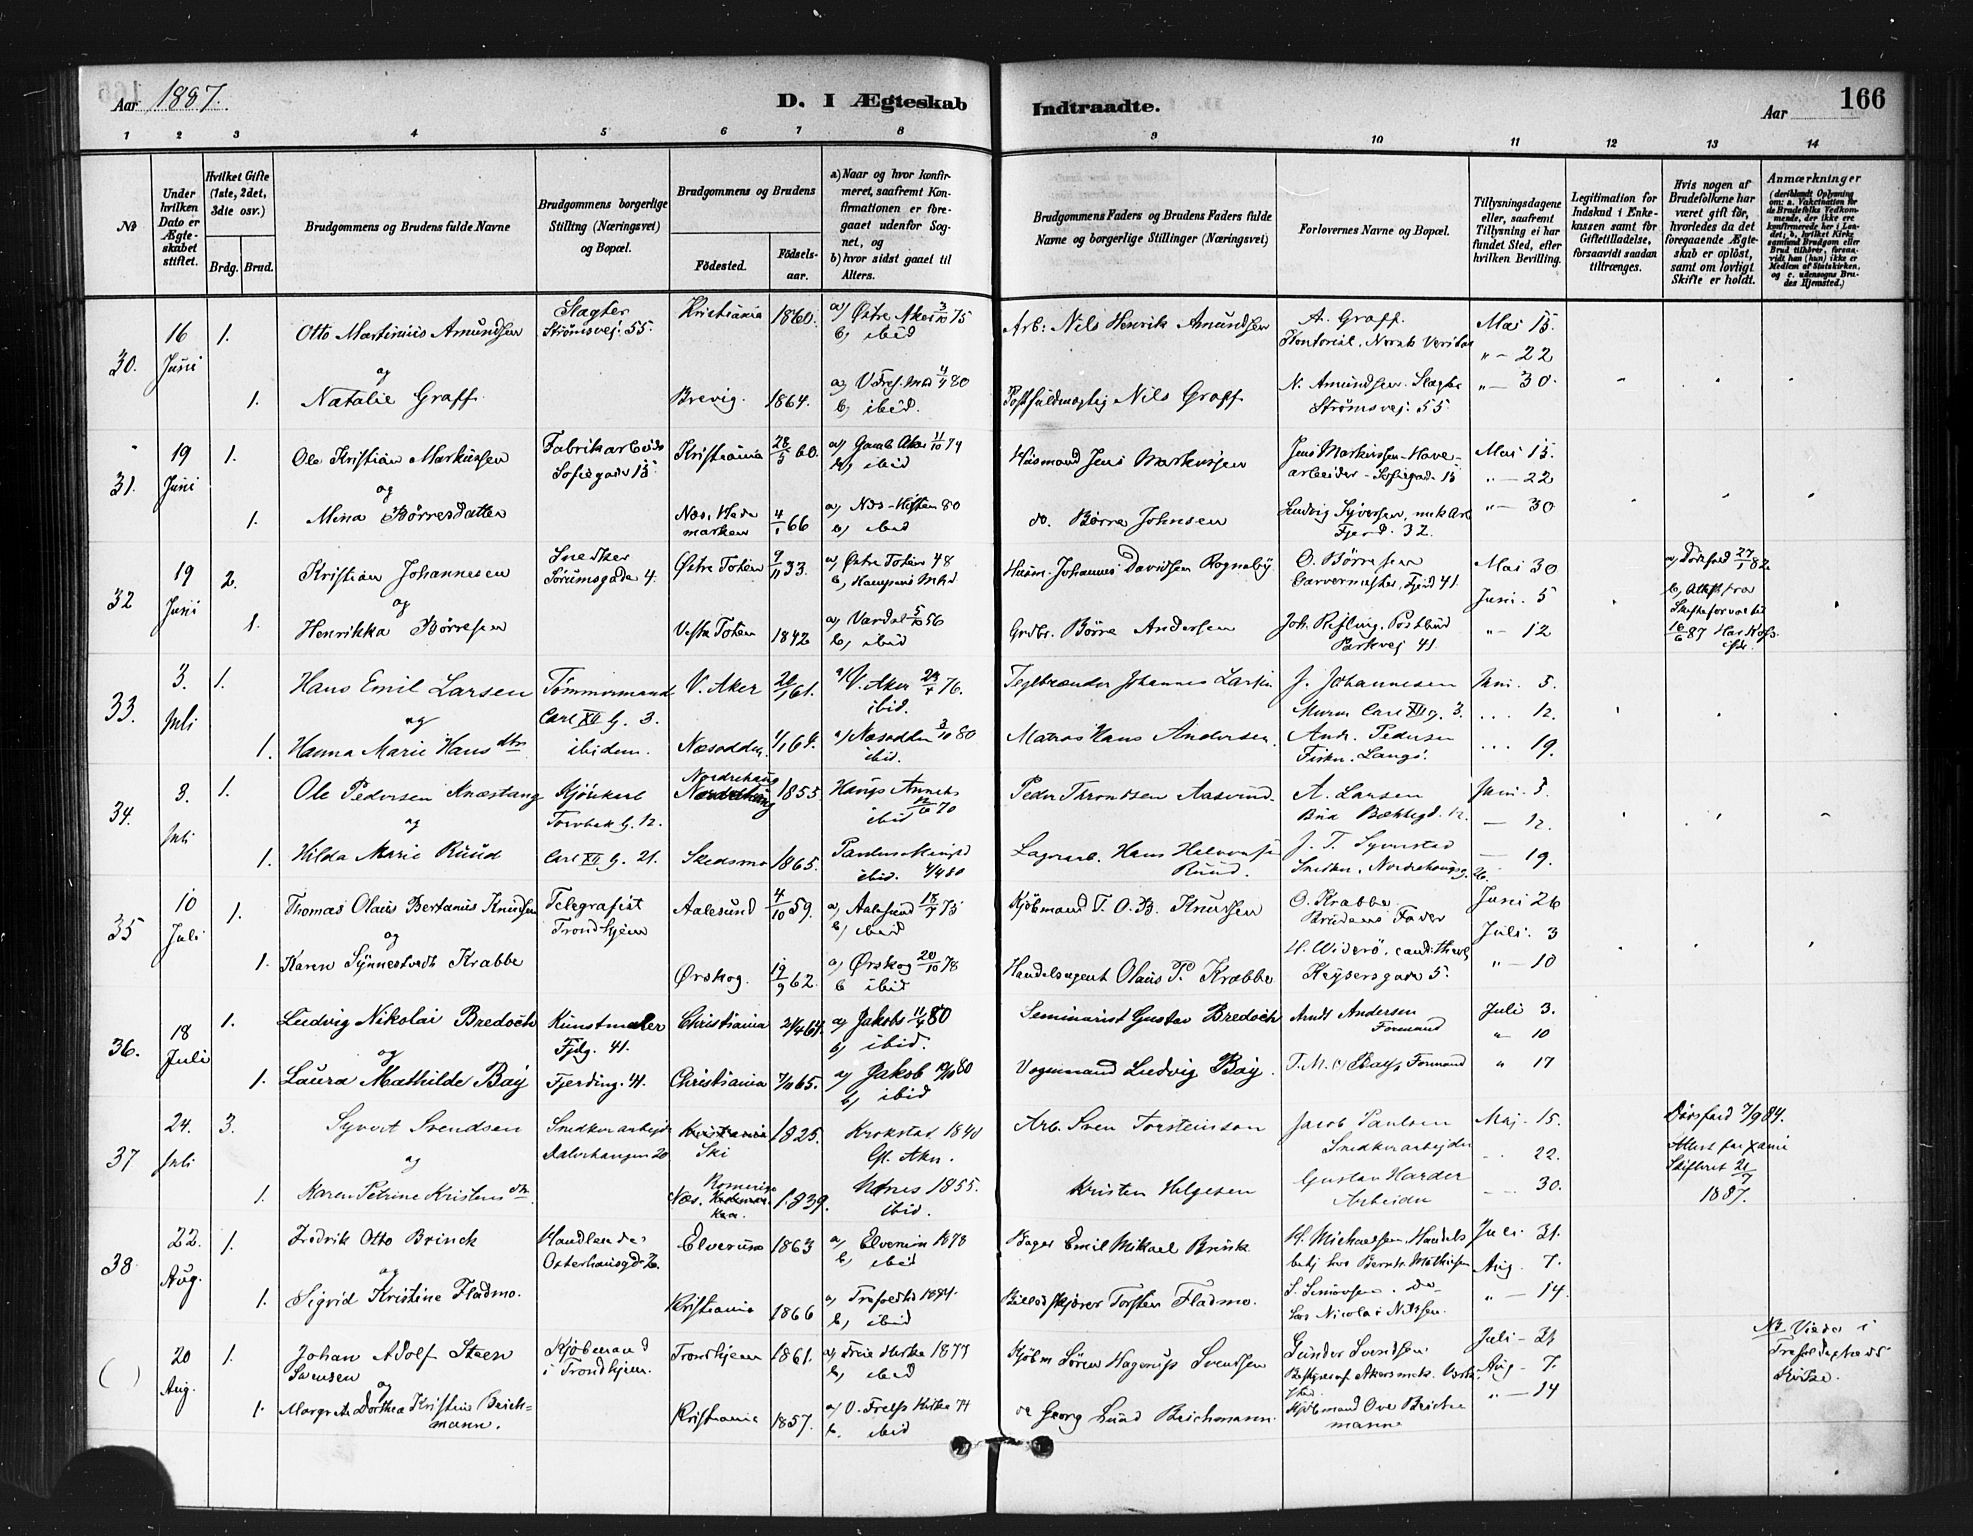 Aar 1887.
D. I Ægteskab Indtraadte.
Aar
166
1 2 3 4 5 6 7 8 9 10 11 12 13 14
No
Under hvilken Dato er Ægteskabet stiftet.
Hvilket Gifte (1ste, 2det, 3die osv.)
Brdg. Brud.
Brudgommens og Brudens fulde Navne
Brudgommens borgerlige Stilling (Næringsvei) og Bopæl.
Brudgommens og Brudens
Fødested.
Fødselsaar.
a) Naar og hvor konfirmeret, saafremt Konfirmationen er foregaaet udenfor Sognet, og
b) hvor sidst gaaet til Alters.
Brudgommens Faders og Brudens Faders fulde Navne og borgerlige Stillinger (Næringsvei)
Forlovernes Navne og Bopæl.
Tillysningsdagene eller, saafremt Tillysning ei har fundet Sted, efter hvilken Bevilling.
Legitimation for Indskud i Enkekassen samt for Giftetilladelse, forsaavidt saadan tiltrænges.
Hvis nogen af Brudefolkene har været gift før, hvorledes da det foregaaende Ægteskab er opløst, samt om lovligt Skifte er holdt.
Anmærkninger
(deriblandt Oplysning om: a. Vakcination for de Brudefolks Vedkommende, der ikke ere konfirmerede her i Landet; b. hvilket Kirkesamfund Brudgom eller Brud tilhører, forsaavidt han (hun) ikke er Medlem af Statskirken, og c. udensogns Brudes Hjemsted.)
30. 16 Juni 1. Otto Martinius Amundsen Slagter Strømsvej. 55. Kristiania 1860. a) Østre Aker 3/10 75 b, ibid Arb: Nils Henrik Amundsen A. Graff. Kontorist, Norsk Veritas Mai 15. " - 22
og
1. Natalie Graff. Brevig. 1864. b, ibid. Postfuldmægtig Nils Graff N. Amundsen. Slagter Strømsvej. 55 " - 30.
31. 19 Juni 1. Ole Kristian Markussen Fabrikarbeider Sofiegade 15 Kristiania 28/5 60. a) Gamle Aker 11/10 74 b, ibid Husmand Jens Markussen Jens Markussen - Havearbeider - Sofiegade 15 Mai 15. " - 22
og
1. Mina Børresdatter Næs, Hedemarken 4/1 66 80 b, ibid do. Børre Johnsen Ludvig Syversen, Fjerd. 32. " - 30
32 19 Juni 2. Kristian Johannesen Snedker Sørumsgade 4. Østre Toten 9/11 33. a) Østre Toten 48 Husm. Johannes Davidsen Rognsby O. Børresen Garvermester, Fjerd 41. Mai 30 Juni. 5 a, Dødsfald 27/1 82
og
1. Henrikka Børresen Vestre Toten 1842 a, Vardal 5/10 56 b, ibid Grdbr. Børre Andersen Joh. Rifling. Postbud Parkvej 41. " - 12 b, Attest fra Skifteforvalter 16/6 87
33. 3. Juli 1. Hans Emil Larsen Tømmermand Carl XII G. 3. V. Aker 20/1 61. a) V. Aker 76. ibid. Teglbrænder Johannes Larsen J. Johannesen Murer Carl XII g. 3. Juni. 5. ... 12.
og
1. Hanna Marie Hans dtr ibidem. Næsodden. 1/1 64. a) Næsodden 3/10 80 ibid. Matros Hans Andersen. Andr. Pedersen Fisker. Langø. ... 19.
34. 3. Juli 1. Ole Pedersen Kjørekarl Torvbak G. 12. Nordrehaug 1855 70 ibid Peder Throndsen A. Larsen Juni. 5. - 12.
og
1. Hilda Marie Ruud Carl XII G. 21. Skedsmo 1865. ibid. 4/4 80 Lagerarb. Hans Halvorsen Ruud. J. T. Syverstad Snedker. Nordrehaugsg. 26. - 19.
35 10 Juli 1. Thomas Olaus Bertanus Knudsen Telegrafist Trondhjem Aalesund 4/10 59. a, Aalesund 75 b, ibid Kjøbmand T. O. B. Knudsen O. Krabbe. Brudens Fader Juni 26 Juli. 3
og
1. Karen Synnestvedt Krabbe Ørskog. 12/9 62. a) Ørskog 20/10 78 b ibid Handelsagent Olaus P. Krabbe H. Widerø, cand. theol Keysersgade 5. " - 10
36. 18 Juli 1. Ludvig Nikolai Bredoch Kunstmaler Fjdg. 41. Christiania 2/4 64. a) Jakobs 11/4 80 b) ibid. Seminarist Gustav Bredoch Arndt Andersen Formand Juli 3. " 10
og
1. Laura Mathilde Bay Fjerding. 41. Christiania 7/10 65. a) Jakob 10/10 80 b) ibid Vognmand Ludvig Bay. Formand " 17
37 24. Juli 3. Syvert Svendsen Snedkerarbejder Dalerhaugen 20 Ski 1825. Krokstad. 1840 Gl. Aker. Arb. Sven Torsteinson Jacob Paulsen Snedkerarbejder Maj. 15. 22. Dødsfald 7/9 84.
og
1. Karen Petrine Kristens dtr Næs. Romerike 1839. 1855. ibid. Kristen Helgesen Gustav Harder Arbeider 30. Skifteret 21/7 1887.
38 22. Aug. 1. Fredrik Otto Brinck Handlende Osterhausgd 2. Elverum 1863 a) Elverum 1878 b, ibid Bager Emil Mikael Brinck H. Michaelsen, Handelsbetj hos Bernts. Mathisen Juli 31. Aug. 7.
og
1. Sigrid Kristine Fladmo. Kristiania 1866 b, ibid Billedskjærer Torsten Fladmo. S. Simonsen. do Lars Nicolai Nilssen. " - 14.
( ) 20 Aug. 1. Johan Adolf Steen Svensen Kjøbmand i Trondhjem. Trondhjem 1861. 1877 b, ibid Kjøbm Søren Hagerup Svendsen Gunder Svendsen Juli - 31 Aug - 7. NB. Viede i Trefoldigheds Kirke.
og
1. Margrete Dorthea Kristin Beichmann. Kristiania 1857. a) V. Frels Kirke 74 b. ibid do Georg Lund Beichmann. Kjøbmand Ove Beichmann " - 14